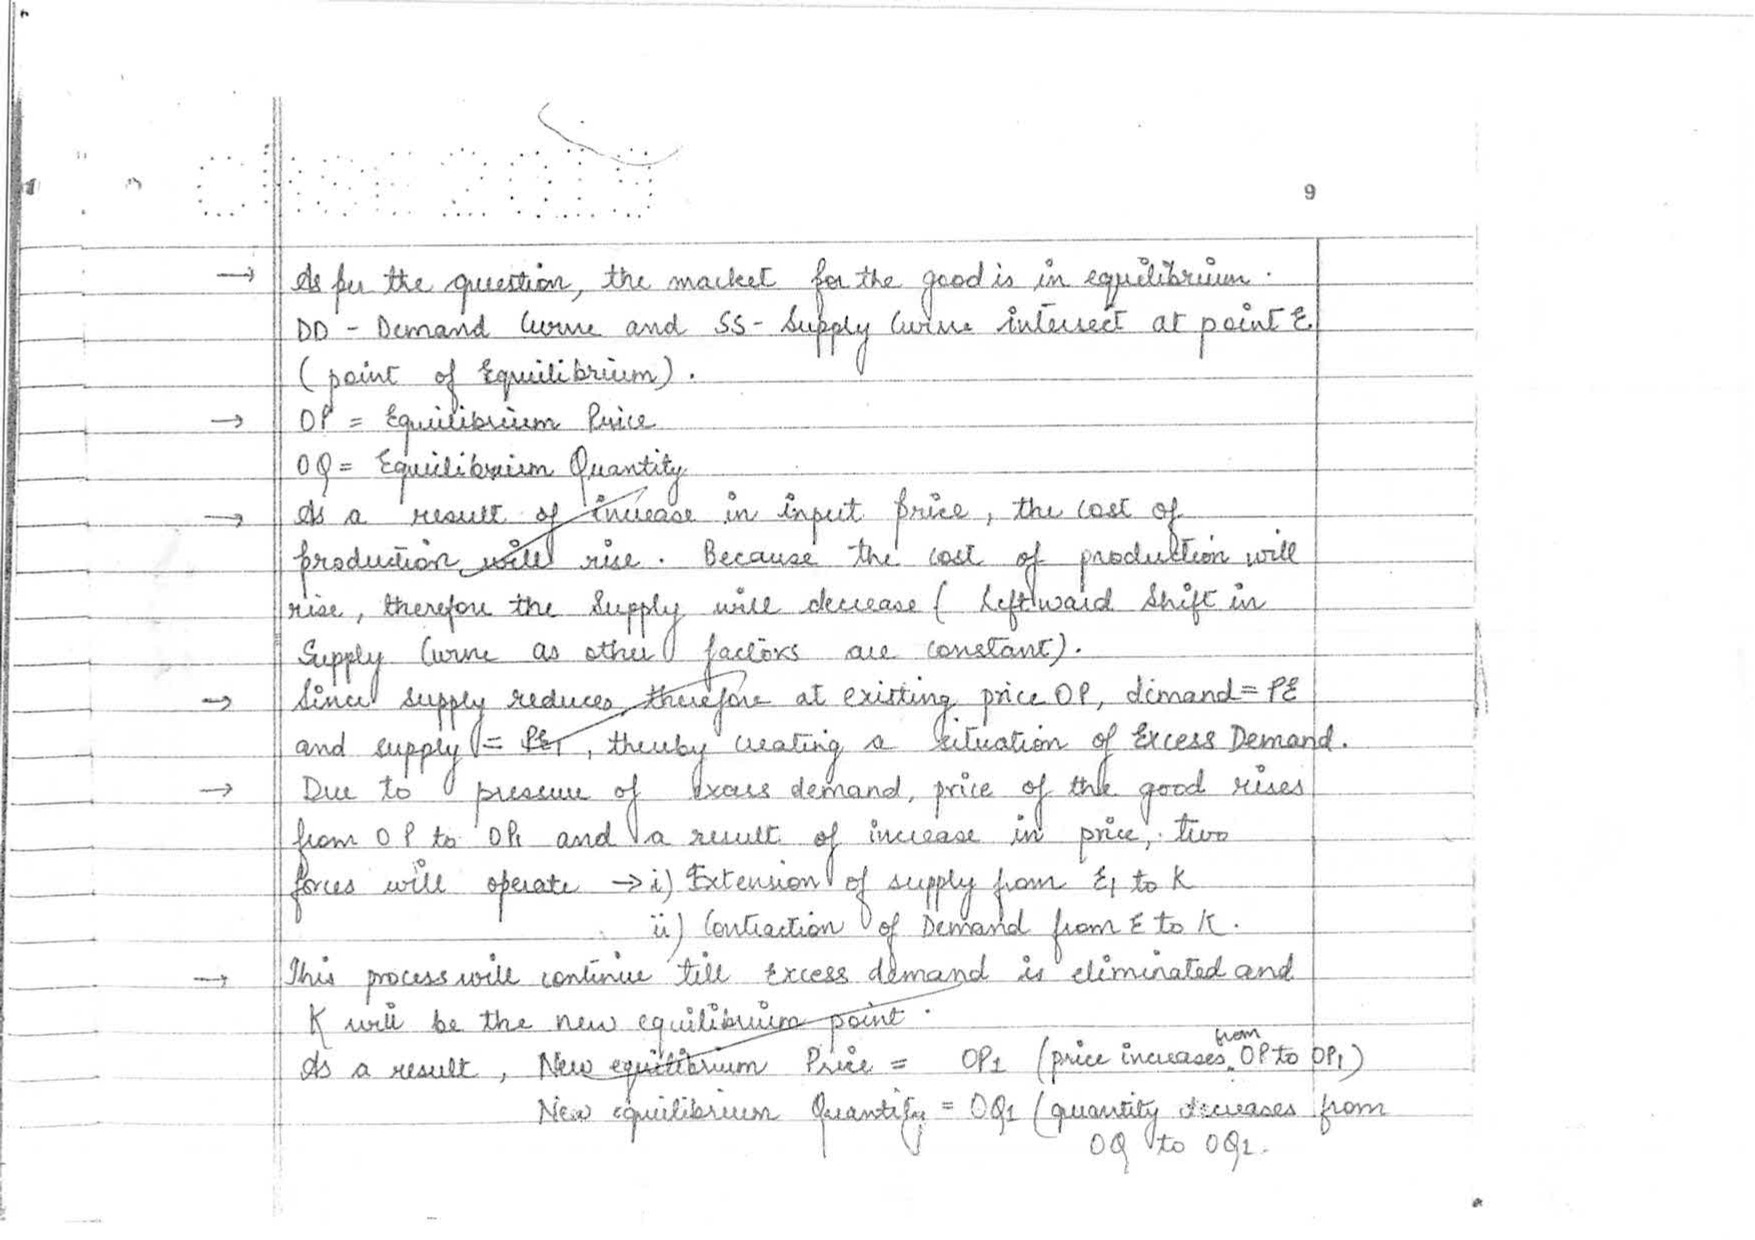 CBSE 2019
9
→ As per the question, the market for the good is in equilibrium.
DD - Demand Curve and SS - Supply Curve intersect at point E
(point of Equilibrium).
→ OP = Equilibrium Price
OQ = Equilibrium Quantity
→ As a result of increase in input price, the cost of
production will rise. Because the cost of production will
rise, therefore the Supply will decrease (Leftward Shift in
Supply Curve as other factors are constant).
→ Since supply reduces, therefore at existing price OP, demand = PE
and supply = PE1, thereby creating a situation of Excess Demand.
→ Due to pressure of excess demand, price of the good rises
from OP to OP1 and a result of increase in price, two
forces will operate → i) Extension of supply from E1 to K
ii) Contraction of Demand from E to K.
→ This process will continue till Excess demand is eliminated and
K will be the new equilibrium point.
As a result, New equilibrium Price = OP1 (price increases from OP to OP1)
New equilibrium Quantity = OQ1 (quantity decreases from
OQ to OQ1.